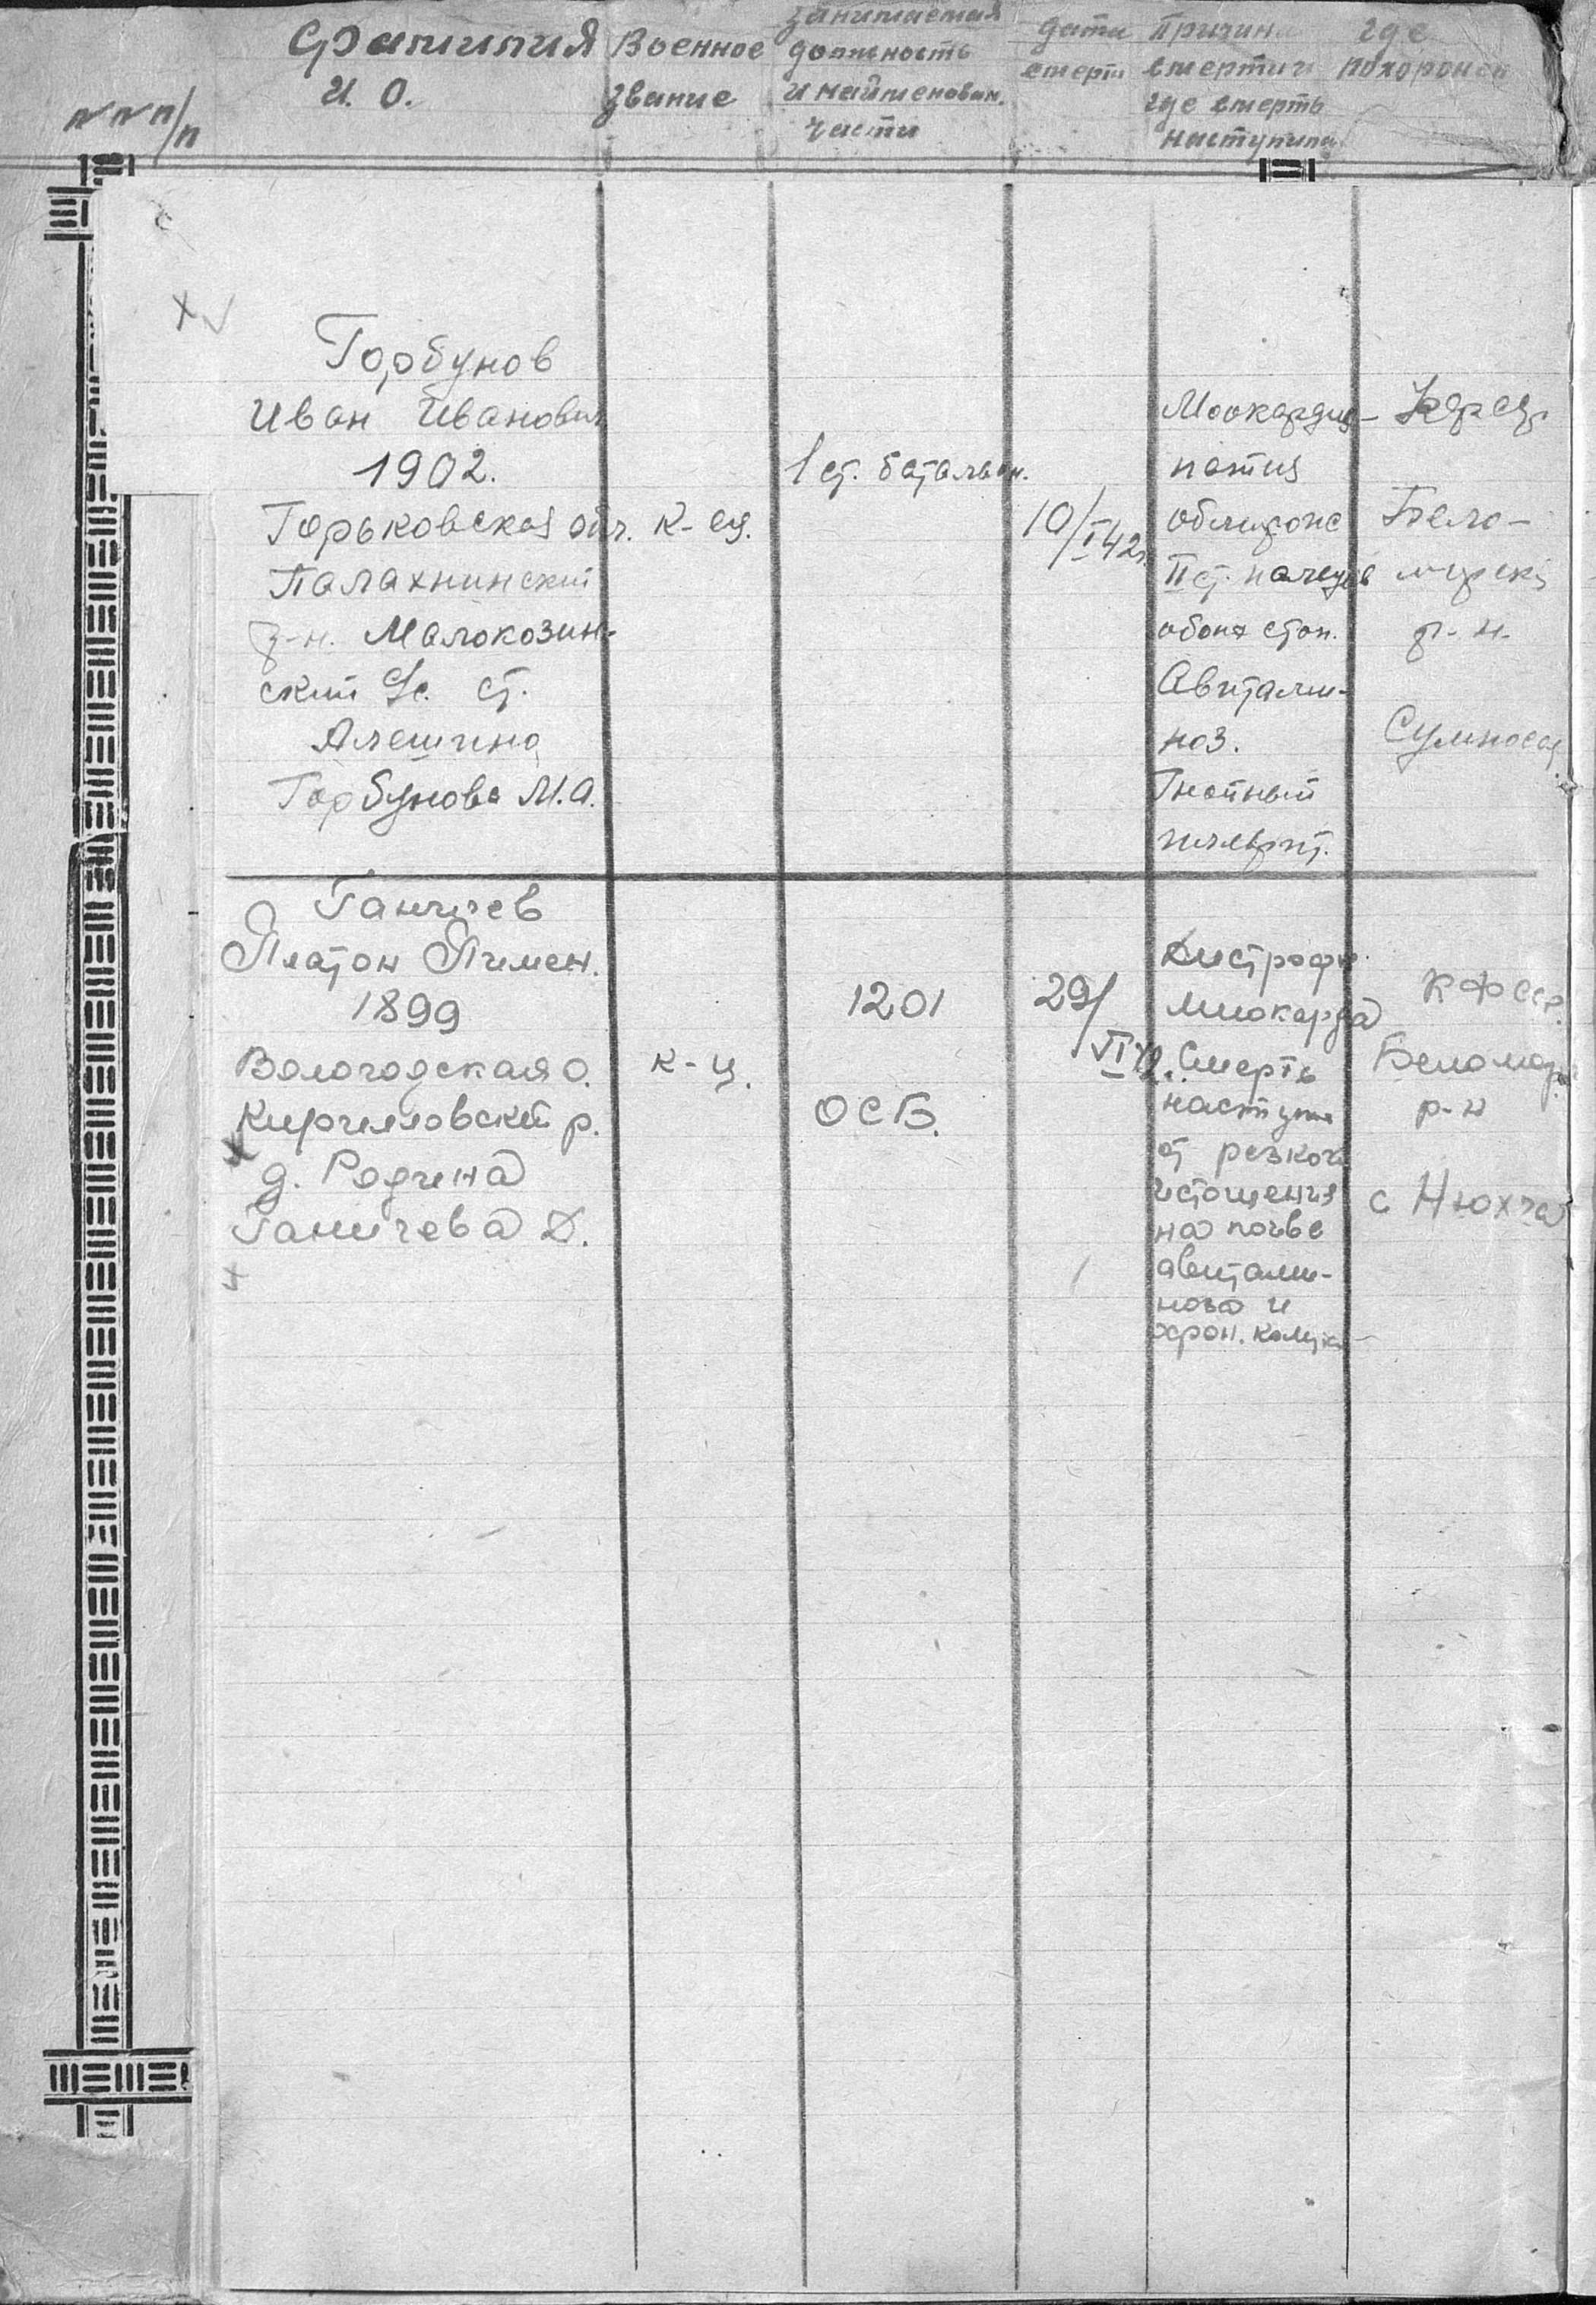 №№ п/п
Фамилия
И. О.
Военное
звание
Занимаемая
должность
и наименован.
части
дата
смерти
Причина
смерти и
где смерть
наступила
где
похоронен
Горбунов
Иван Иванович
1902.
Горьковская обл.
Балахнинский
р-н. Малокозин-
ский с. ст.
Алешино
Горбунова М.А.
К-ец.
1 ст. батальон.
10/I 42г.
Миокардио-
патия
II ст. пальцев
обоих стоп.
Авитами-
ноз.
Гнойный
плеврит.
Бело-
морск.
р-н.
Сумпосад
Ганичев
Платон Пимен.
1899
Вологодская о.
Кирилловский р.
д. Родина
Ганичева Д.
к-ц.
1201
ОСБ.
29/
VI 42.
Дистрофи
миокарда
Смерть
наступил
от резкого
истощения
на почве
авитами-
ноза и
хрон. колита
КФССР.
Беломор.
р-н
с Нюхча